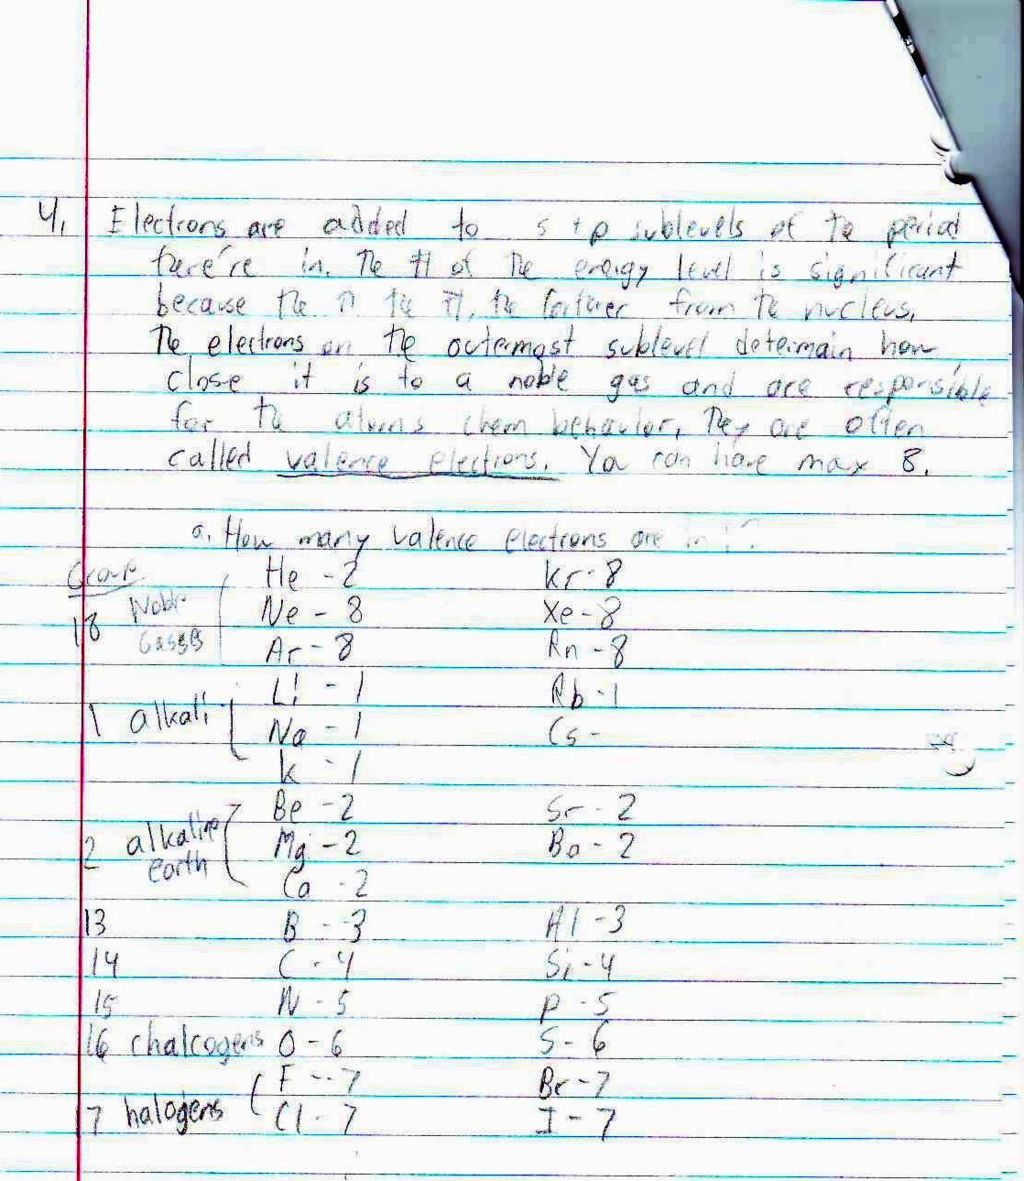 4. Electrons are added to s + p sublevels of the period
there're in. The # of the energy level is significant
because the ↑ the #, the farther from the nucleus.
The electrons on the outermost sublevel determain how
close it is to a noble gas and are responsible
for the atoms chem behavior, They are often
called valence electrons. You can have max 8.
a. How many valence electrons are in :?
Group He - 2 Kr - 8
18 Noble Gasses Ne - 8 Xe - 8
Ar - 8 Rn - 8
Li - 1 Rb - 1
1 alkali Na - 1 Cs -
K - 1
Be - 2 Sr - 2
2 alkaline earth Mg - 2 Ba - 2
Ca - 2
13 B - 3 Al - 3
14 C - 4 Si - 4
15 N - 5 P - 5
16 chalcogens O - 6 S - 6
F - 7 Br - 7
17 halogens Cl - 7 I - 7